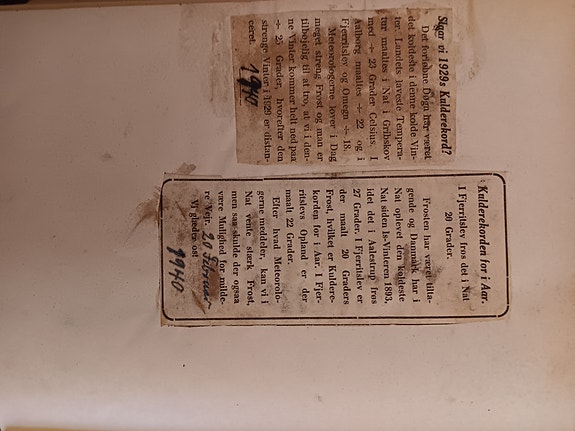 Slaar vi 1929s Kulderekord?
Det forløbne Døgn har været
det koldeste i denne kolde Vin-
ter. Landets laveste Tempera-
tur maaltes i Nat i Gribskov
med ÷ 23 Grader Celsius. I
Aalborg maaltes ÷ 22 og i
Fjerritslev og Omegn ÷ 18.
Meteorologerne lover i Dag
meget streng Frost og man er
tilbøjelig til at tro, at vi i den-
ne Vinter kommer helt ned paa
÷ 25 Grader, hvorefter den
strenge Vinter i 1929 er distan-
ceret.
1940
Kulderekorden for i Aar.
I Fjerritslev frøs det i Nat
20 Grader.
Frosten har været tilta-
gende og Danmark har i
Nat oplevet den koldeste
Nat siden Is-Vinteren 1893,
idet det i Aalestrup frøs
27 Grader. I Fjerritslev er
der maalt 20 Graders
Frost, hvilket er Kuldere-
korden for i Aar. I Fjer-
ritslevs Opland er der
maalt 22 Grader.
Efter hvad Meteorolo-
gerne meddeler, kan vi i
Nat vente stærk Frost,
men saa skulde der ogsaa
være Mulighed for milde-
re Vejr. 20 Februar
Vi glæder os!
1940